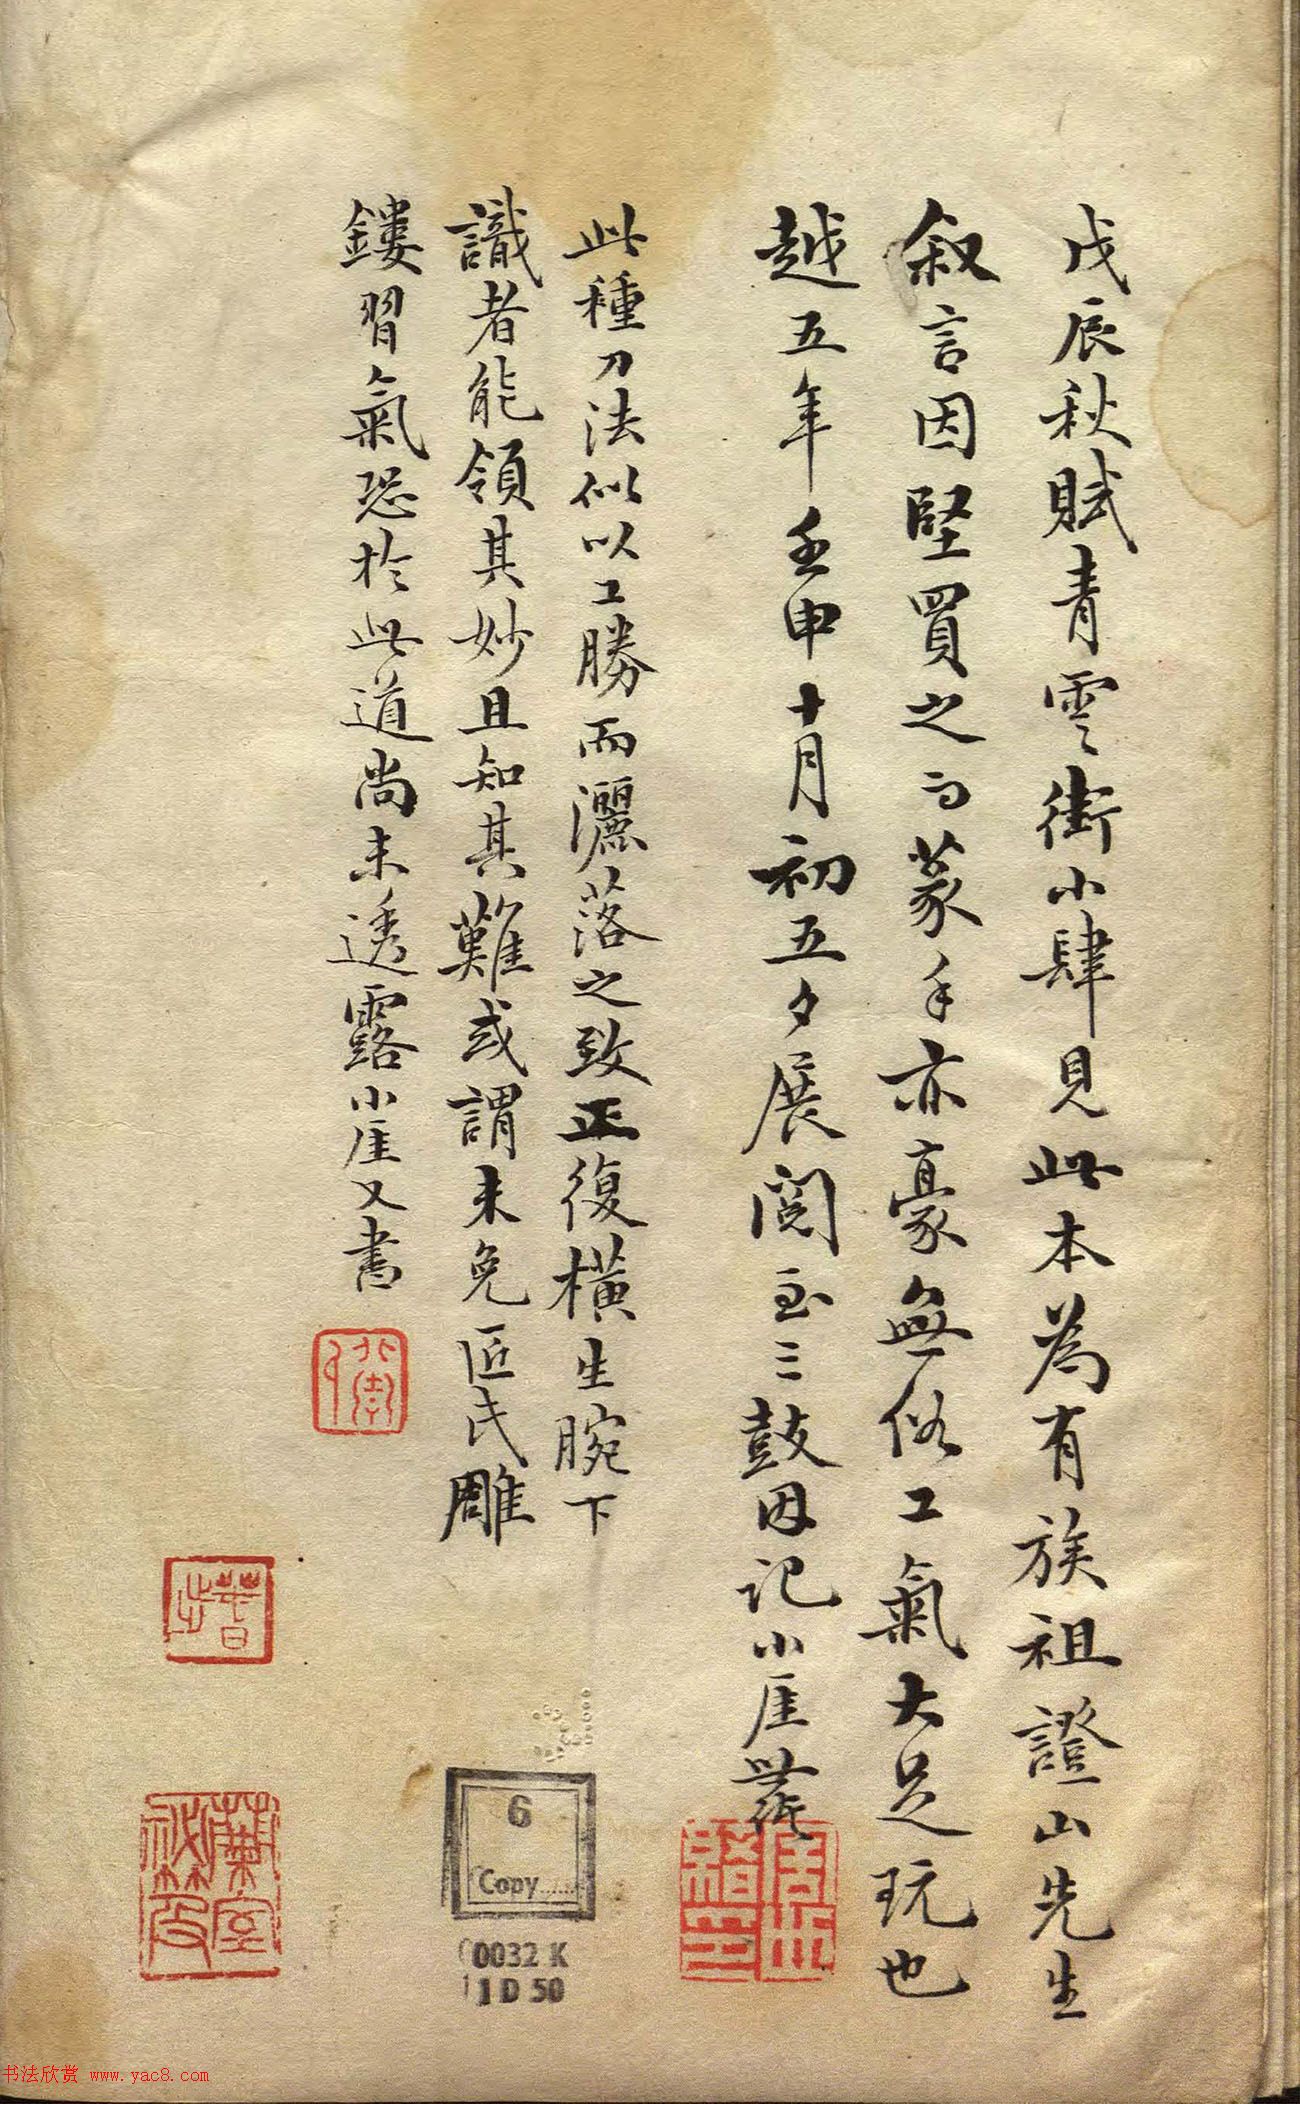 戊辰秋賦青雲街小肆見此本為有族祖證山先生
叙言因堅買之而篆手亦豪無俗工氣大足玩也
越五年壬申十月初五夕展閱至三鼓因記小厓
此種刀法似以工勝而灑落之致正復橫生腕下
識者能領其妙且知其難或謂未免匠氏雕
鏤習氣恐於此道尚未透露小厓又書
6
Copy
0032 K
1 D 50
书法欣赏 www.yac8.com